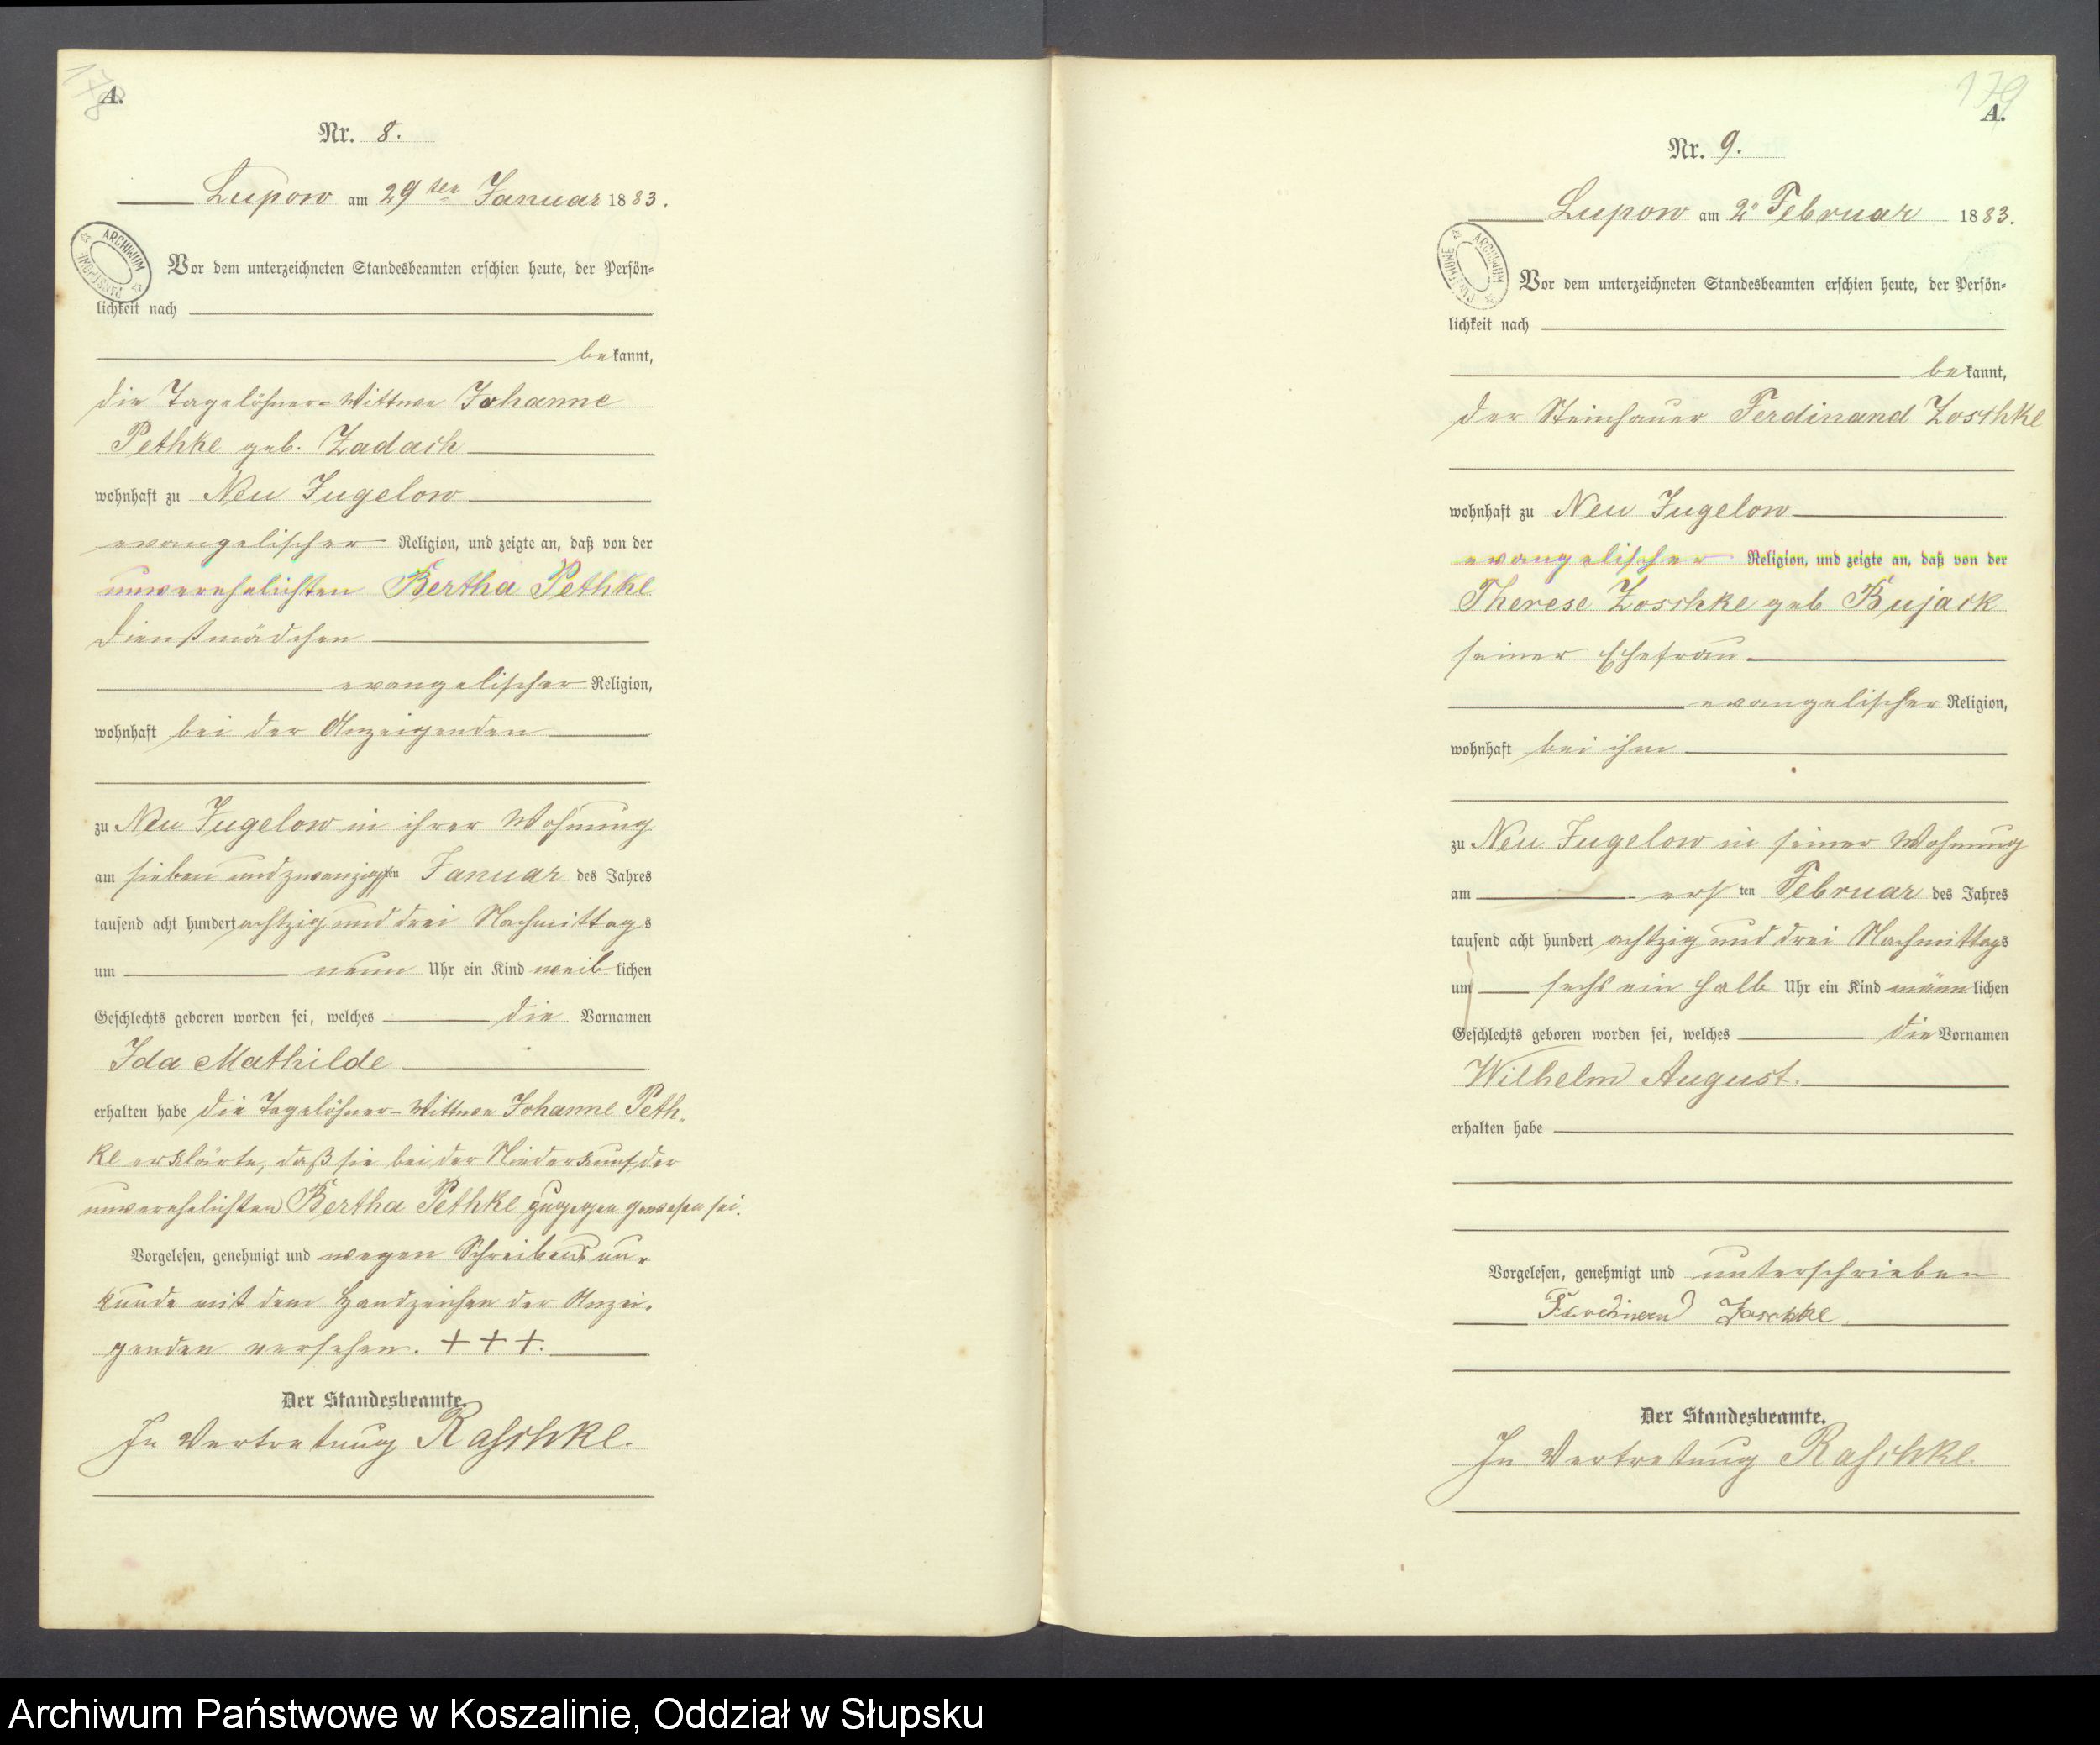 178
A.
Nr. 8.
Lupow am 29ten Januar 1883.
ARCHIWUM PAŃSTWOWE
Vor dem unterzeichneten Standesbeamten erschien heute, der Persön=
lichkeit nach
bekannt,
die Tagelöhner=Wittwe Johanne
Pethke geb. Zadach
wohnhaft zu Neu Jugelow
evangelischer Religion, und zeigte an, daß von der
unverehelichten Bertha Pethke
Dienstmädchen
evangelischer Religion,
wohnhaft bei der Anzeigenden
zu Neu Jugelow in ihrer Wohnung
am sieben und zwanzigsten Januar des Jahres
tausend acht hundert achtzig und drei Nachmittags
um neun Uhr ein Kind weiblichen
Geschlechts geboren worden sei, welches die Vornamen
Ida Mathilde
erhalten habe die Tagelöhner-Wittwe Johanne Peth-
ke erklärte, daß sie bei der Niederkunft der
unverehelichten Bertha Pethke zugegen gewesen sei.
Vorgelesen, genehmigt und wegen Schreibens un-
kunde mit dem Handzeichen der Anzei-
genden versehen. + + +.
Der Standesbeamte.
In Vertretung Raschke.
179
A.
Nr. 9.
Lupow am 2n Februar 1883.
ARCHIWUM PAŃSTWOWE
Vor dem unterzeichneten Standesbeamten erschien heute, der Persön=
lichkeit nach
bekannt,
der Steinhauer Ferdinand Zoschke
wohnhaft zu Neu Jugelow
evangelischer Religion, und zeigte an, daß von der
Therese Zoschke geb Bujack
seiner Ehefrau
evangelischer Religion,
wohnhaft bei ihm
zu Neu Jugelow in seiner Wohnung
am ersten Februar des Jahres
tausend acht hundert achtzig und drei Nachmittags
um sechs ein halb Uhr ein Kind männlichen
Geschlechts geboren worden sei, welches die Vornamen
Wilhelm August.
erhalten habe
Vorgelesen, genehmigt und unterschrieben
Ferdinand Zoschke
Der Standesbeamte.
In Vertretung Raschke.
Archiwum Państwowe w Koszalinie, Oddział w Słupsku